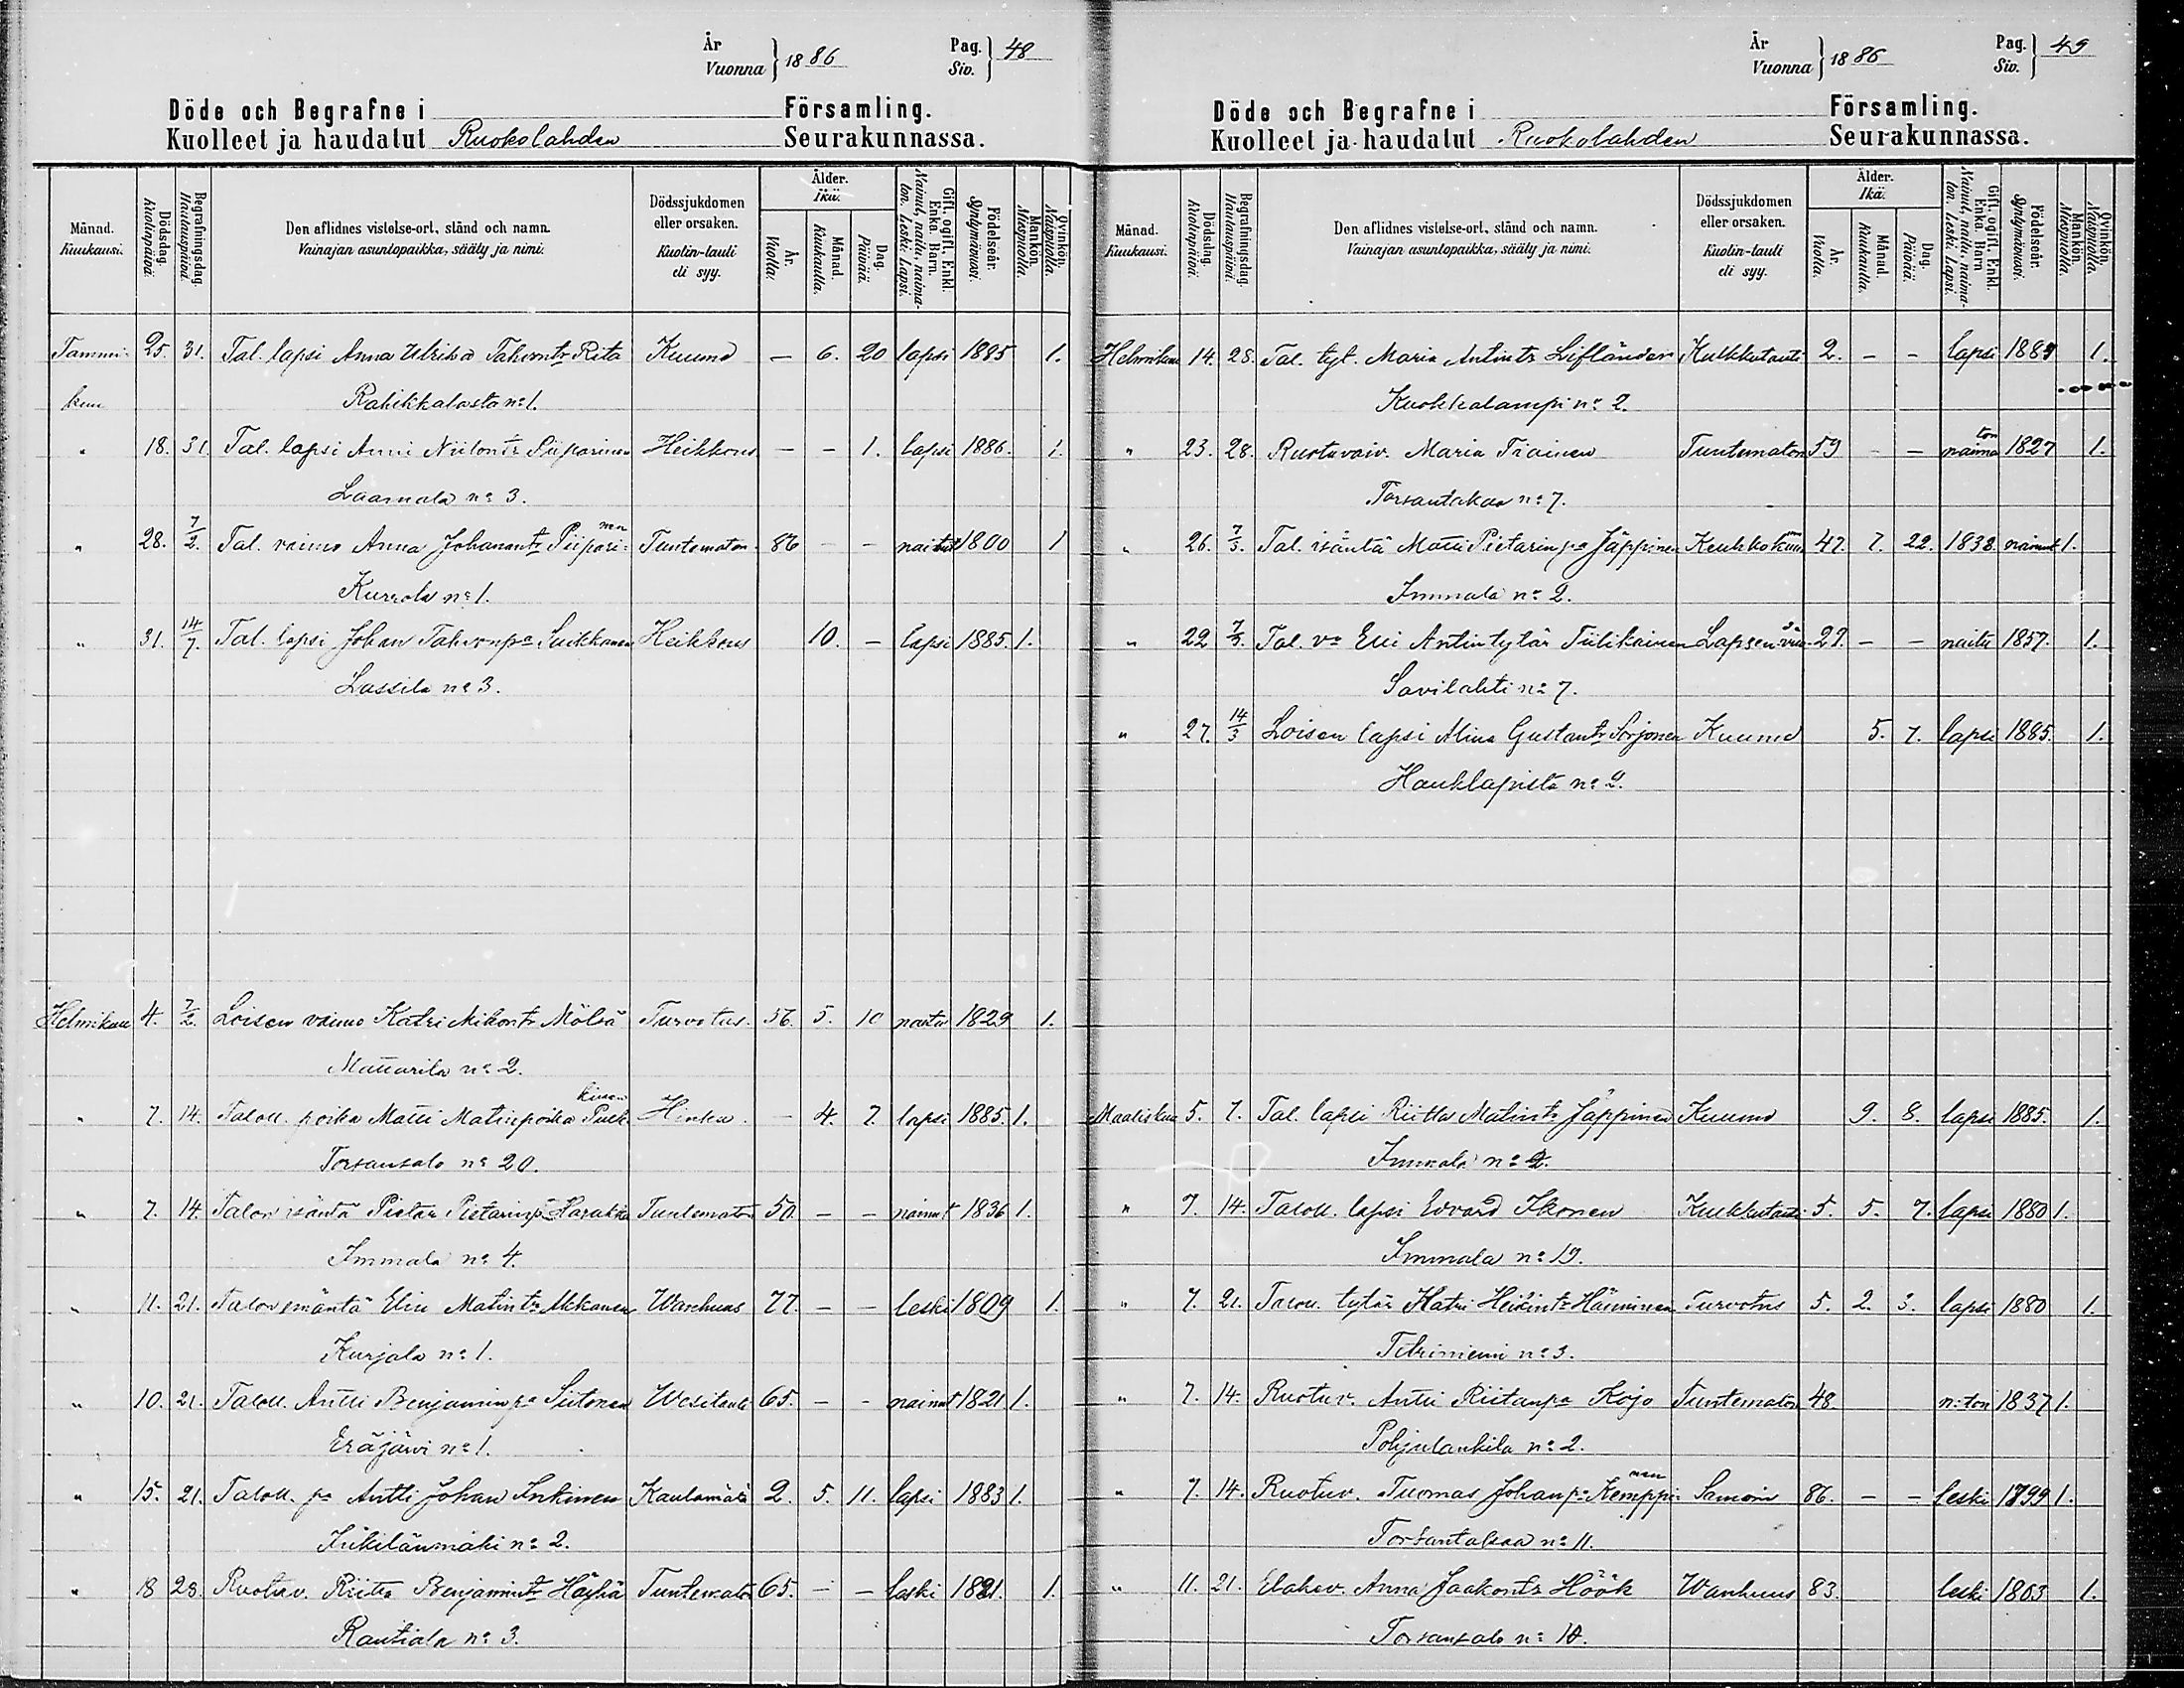 År
Vuonna } 1886
Pag.
Siv. } 48
Döde och Begrafne i Församling.
Kuolleet ja haudatut Ruokolahden Seurakunnassa.
Månad. Kuukausi.
Dödsdag. Kuolinpäivä.
Begrafningsdag. Hautauspäivä.
Den aflidnes vistelse-ort, stånd och namn.
Vainajan asuntopaikka, sääty ja nimi.
Dödssjukdomen eller orsaken.
Kuolin-tauti eli syy.
Ålder. Ikä.
År. Vuotta.
Månad. Kuukautta.
Dag. Päivää.
Gift, ogift, Enkl. Enka. Barn.
Nainut, naitu, naimaton. Leski. Lapsi.
Födelseår. Syntymävuosi.
Mankön. Miespuolia.
Qvinkön. Naispuolia.
Tammi- 25. 31. Tal. lapsi Anna Ulrika Rita Kuume — 6. 20 lapsi 1885 1.
kuu Rahikkalasta n:o 1.
" 18. 31. Tal. lapsi Anni Niilontr Piiparinen Heikkous — - 1. lapsi 1886. 1.
Laamala n:o 3.
" 28. 7/2. Tal. vaimo Anna Johanantr Piipari- nen Tuntematon 86 - - 1800 1
Kurrola n:o 1.
" 31. 14/7. Tal. lapsi Johan Suikkanen Heikkous 10. — lapsi 1885. 1.
Lassila n:o 3.
Helmikuu 4. 7/2. Loisen vaimo Katri Mikontr Mölsä Turvotus. 56. 5. 10 naitu 1829 1.
Mattarila n:o 2.
" 7. 14. Taloll. poika Matti Matinpoika Puk- kinen Hinku. - 4. 7. lapsi 1885. 1.
Torsansalo n:o 20.
" 7. 14. Talon isäntä Pietar Pietarinp. Harakka Tuntematon 50. — — nainut 1836 1.
Immala n:o 4.
" 11. 21. Talon emäntä Elin Matintr Akkanen Wanhuus 77. — — leski 1809 1.
Kurjala n:o 1.
" 10. 21. Taloll. Antti Benjaminpa Siitonen Wesitauti 65. — - nainut 1821 1.
Eräjärvi n:o 1.
" 15. 21. Taloll. pa Antti Johan Inkinen Kaulamätä 2. 5. 11. lapsi 1883 1.
Inkilänmäki n:o 2.
" 18 28. Ruotuv. Riitta Benjamintr Häyhä Tuntematon 65. — — leski 1821. 1.
Rautiala n:o 3.
År
Vuonna } 1886
Pag.
Siv. } 49
Döde och Begrafne i Församling.
Kuolleet ja haudatut Ruokolahden Seurakunnassa.
Månad. Kuukausi.
Dödsdag. Kuolinpäivä.
Begrafningsdag. Hautauspäivä.
Den aflidnes vistelse-ort, stånd och namn.
Vainajan asuntopaikka, sääty ja nimi.
Dödssjukdomen eller orsaken.
Kuolin-tauti eli syy.
Ålder. Ikä.
År. Vuotta.
Månad. Kuukautta.
Dag. Päivää.
Gift, ogift, Enkl. Enka. Barn
Nainut, naitu, naimaton. Leski. Lapsi.
Födelseår. Syntymävuosi.
Mankön. Miespuolia.
Qvinkön. Naispuolia.
Helmikuu 14. 28. Tal. tyt. Maria Antintr Lifländer Kulkkutauti 2. - - lapsi 1.
Kuokkalampi n:o 2.
" 23. 28. Ruotuvaiv. Maria Tiainen Tuntematon 59 - — naima ton 1827 1.
Torsantakaa n:o 7.
" 26. 7/3. Tal. isäntä Matti Pietarinpa Jäppinen 47. 7. 22. 1838. nainut 1.
Immala n:o 2.
" 22 7/3. Tal. va Elli Antintytär Tiilikainen 29. — — naitu 1857. 1.
Savilahti n:o 7.
" 27. 14/3 Loisen lapsi Alina Gustantr Sorjonen Kuume 5. 7. lapsi 1885. 1.
Hauklapista n:o 2.
Maaliskuu 5. 7. Tal. lapsi Riitta Matintr Jäppinen Kuume 9. 8. lapsi 1885. 1.
Immala n:o 2.
" 7. 14. Taloll. lapsi Edvard Ikonen Kulkkutauti 5. 5. 7. lapsi 1880 1.
Immala n:o 19.
" 7. 21. Taloll. tytär Katri Heikintr Hänninen Turvotus 5. 2. 3. lapsi 1880 1.
Tetriniemi n:o 3.
" 7. 14. Ruotuv. Antti Riitanpa Kojo Tuntematon 48. n:ton 1837 1.
Pohjalankila n:o 2.
" 7. 14. Ruotuv. Tuomas Johanpa Kemppi- nen Samoin 86. — — leski 1799 1.
Torsantakaa n:o 11.
" 11. 21. Elakev. Anna Jaakontr Höök Wanhuus 83. leski 1803 1.
Torsansalo n:o 10.